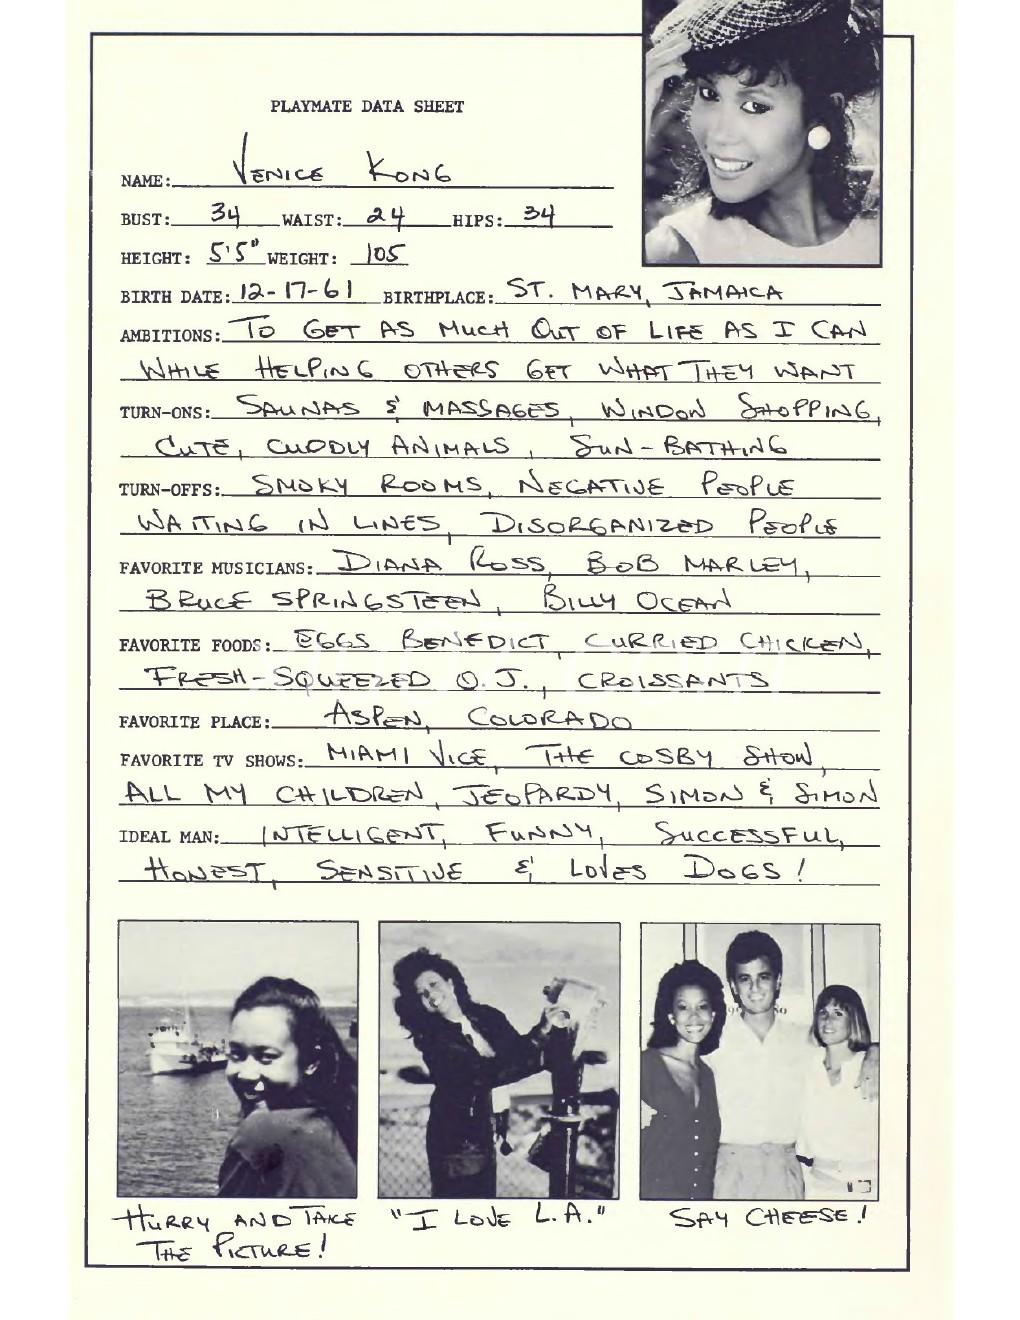 PLAYMATE DATA SHEET
NAME: VENICE KONG
BUST: 34 WAIST: 24 HIPS: 34
HEIGHT: 5'5" WEIGHT: 105
BIRTH DATE: 12-17-61 BIRTHPLACE: ST. MARY, JAMAICA
AMBITIONS: TO GET AS MUCH OUT OF LIFE AS I CAN
WHILE HELPING OTHERS GET WHAT THEY WANT
TURN-ONS: SAUNAS & MASSAGES, WINDOW SHOPPING,
CUTE, CUDDLY ANIMALS, SUN-BATHING
TURN-OFFS: SMOKY ROOMS, NEGATIVE PEOPLE
WAITING IN LINES, DISORGANIZED PEOPLE
FAVORITE MUSICIANS: DIANA ROSS, BOB MARLEY,
BRUCE SPRINGSTEEN, BILLY OCEAN
FAVORITE FOODS: EGGS BENEDICT, CURRIED CHICKEN,
FRESH-SQUEEZED O.J., CROISSANTS
FAVORITE PLACE: ASPEN, COLORADO
FAVORITE TV SHOWS: MIAMI VICE, THE COSBY SHOW,
ALL MY CHILDREN, JEOPARDY, SIMON & SIMON
IDEAL MAN: INTELLIGENT, FUNNY, SUCCESSFUL,
HONEST, SENSITIVE & LOVES DOGS!
HURRY AND TAKE
THE PICTURE!
"I LOVE L.A."
SAY CHEESE!